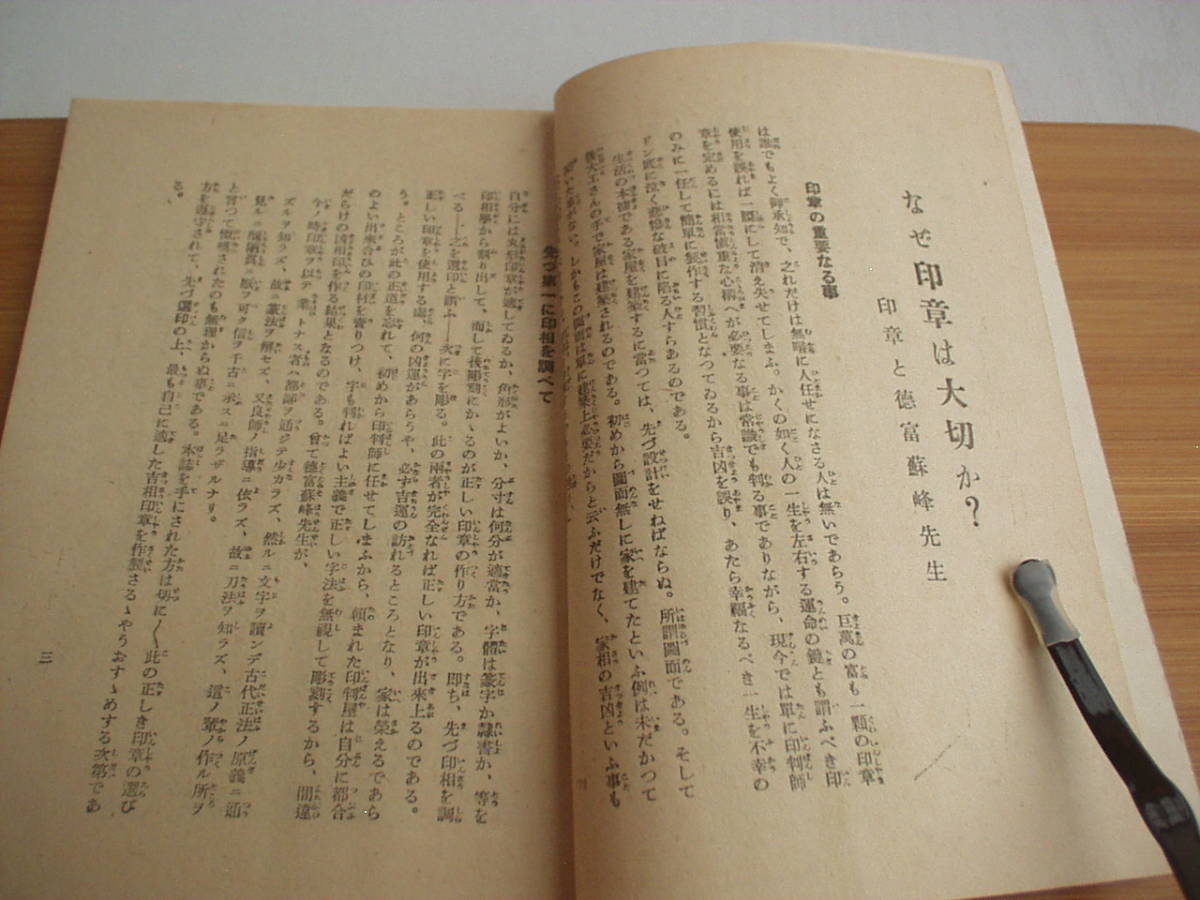 なぜ印章は大切か?
印章と德富蘇峰先生
印章の重要なる事
は誰でもよく御承知で、之れだけは無暗に人任せになさる人は無いであらう。巨萬の富も一顆の印章
使用を誤れば一瞬にして消え失せてしまふ。かくの如く人の一生を左右する運命の鍵とも謂ふべき印
章を定めるには相當慎重な心構へが必要なる事は常識でも判る事でありながら、現今では單に印判師
のみに一任して簡單に製作する習慣となつてゐるから吉凶を誤り、あたら幸福なるべき一生を不幸の
ドン底に泣く悲惨な破目に陷る人すらあるのである。
生活の本據である家屋を建築するに當つては、先づ設計をせねばならぬ。所謂圖面である。そして
後大工さんの手で家屋は建築されるのである。初めから圖面無しに家を建てたといふ例は未だかつて
聞いた事がない。しかもこの圖面は單に建築上必要だからと云ふだけでなく、家相の吉凶といふ事も
先づ第一に印相を調べて
自分には丸形印章が適してゐるか、角形がよいか、分寸は何分が適當か、字體は篆字か隷書か、等を
印相學から割り出して、而して後彫刻にかゝるのが正しい印章の作り方である。即ち、先づ印相を調
べる——之を選印と謂ふ——次に字を彫る。此の兩者が完全なれば正しい印章が出來上るのである。
正しい印章を使用する處、何の凶運があらうや、必ず吉運の訪れるところとなり、家は榮えるであら
う。ところが此の正道を忘れて、初めから印判師に任せてしまふから、頼まれた印判屋は自分に都合
のよい出來合ひの印材を賣りつけ、字も判ればよい主義で正しい字法を無視して彫刻するから、間違
だらけの凶相印を作る結果となるのである。曾て德富蘇峰先生が、
今ノ時印章ヲ以テ業トナス者ハ都鄙ヲ通ジテ少カラズ、然ルニ文字ヲ讀ンデ古代正法ノ原義ニ通
ズルヲ知ラズ、故ニ篆法ヲ解セズ、又良師ノ指導ニ依ラズ、故ニ刀法ヲ知ラズ、這ノ輩ノ作ル所ヲ
見ルニ醜陋眞ニ厭フ可ク信ヲ千古ニ示スニ足ラザルナリ。
と言つて慨嘆されたのも無理からぬ事である。本誌を手にされた方は切に〱此の正しき印章の選び
方を遵守されて、先づ選印の上、最も自己に適した吉相印章を作製さるゝやうおすゝめする次第であ
る。
三